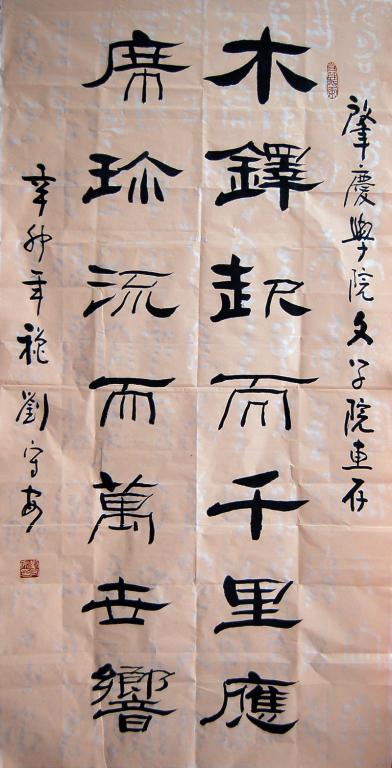 肇慶學院文学院惠存
木鐸起而千里應
席珍流而萬世響
辛卯年穐劉守安